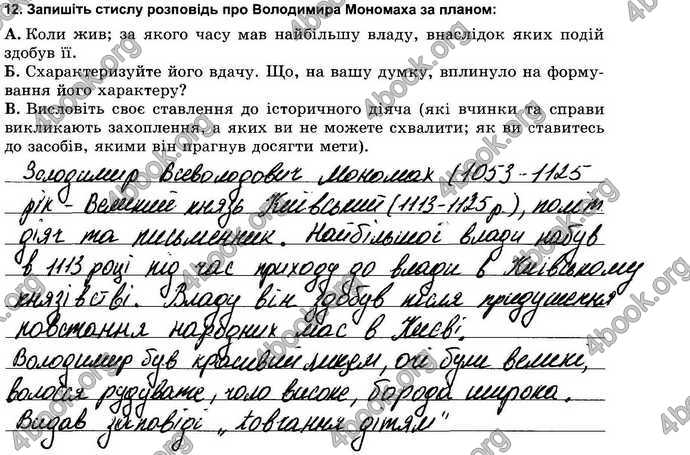 12. Запишіть стислу розповідь про Володимира Мономаха за планом:
А. Коли жив; за якого часу мав найбільшу владу, внаслідок яких подій
здобув її.
Б. Схарактеризуйте його вдачу. Що, на вашу думку, вплинуло на форму-
вання його характеру?
В. Висловіть своє ставлення до історичного діяча (які вчинки та справи
викликають захоплення, а яких ви не можете схвалити; як ви ставитесь
до засобів, якими він прагнув досягти мети).
Володимир Всеволодович Мономах (1053-1125
рік - Великий князь Київський (1113-1125 р.), політ
діяч та письменник. Найбільшої влади набув
в 1113 році під час приходу до влади в Київському
князівстві. Владу він здобув після придушення
повстання народних мас в Києві.
Володимир був красивий лицем, очі були великі,
волосся рудувате, чоло високе, борода широка.
Видав заповіді „Повчання дітям"
4book.org